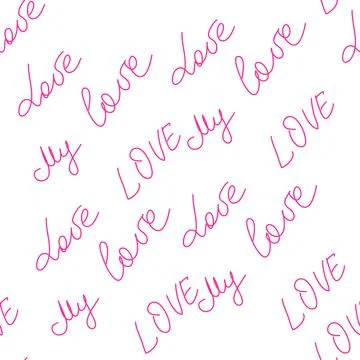 Love love Love
My LOVE My LOVE
Love love Love love
My LOVE My LOVE
Love love Love